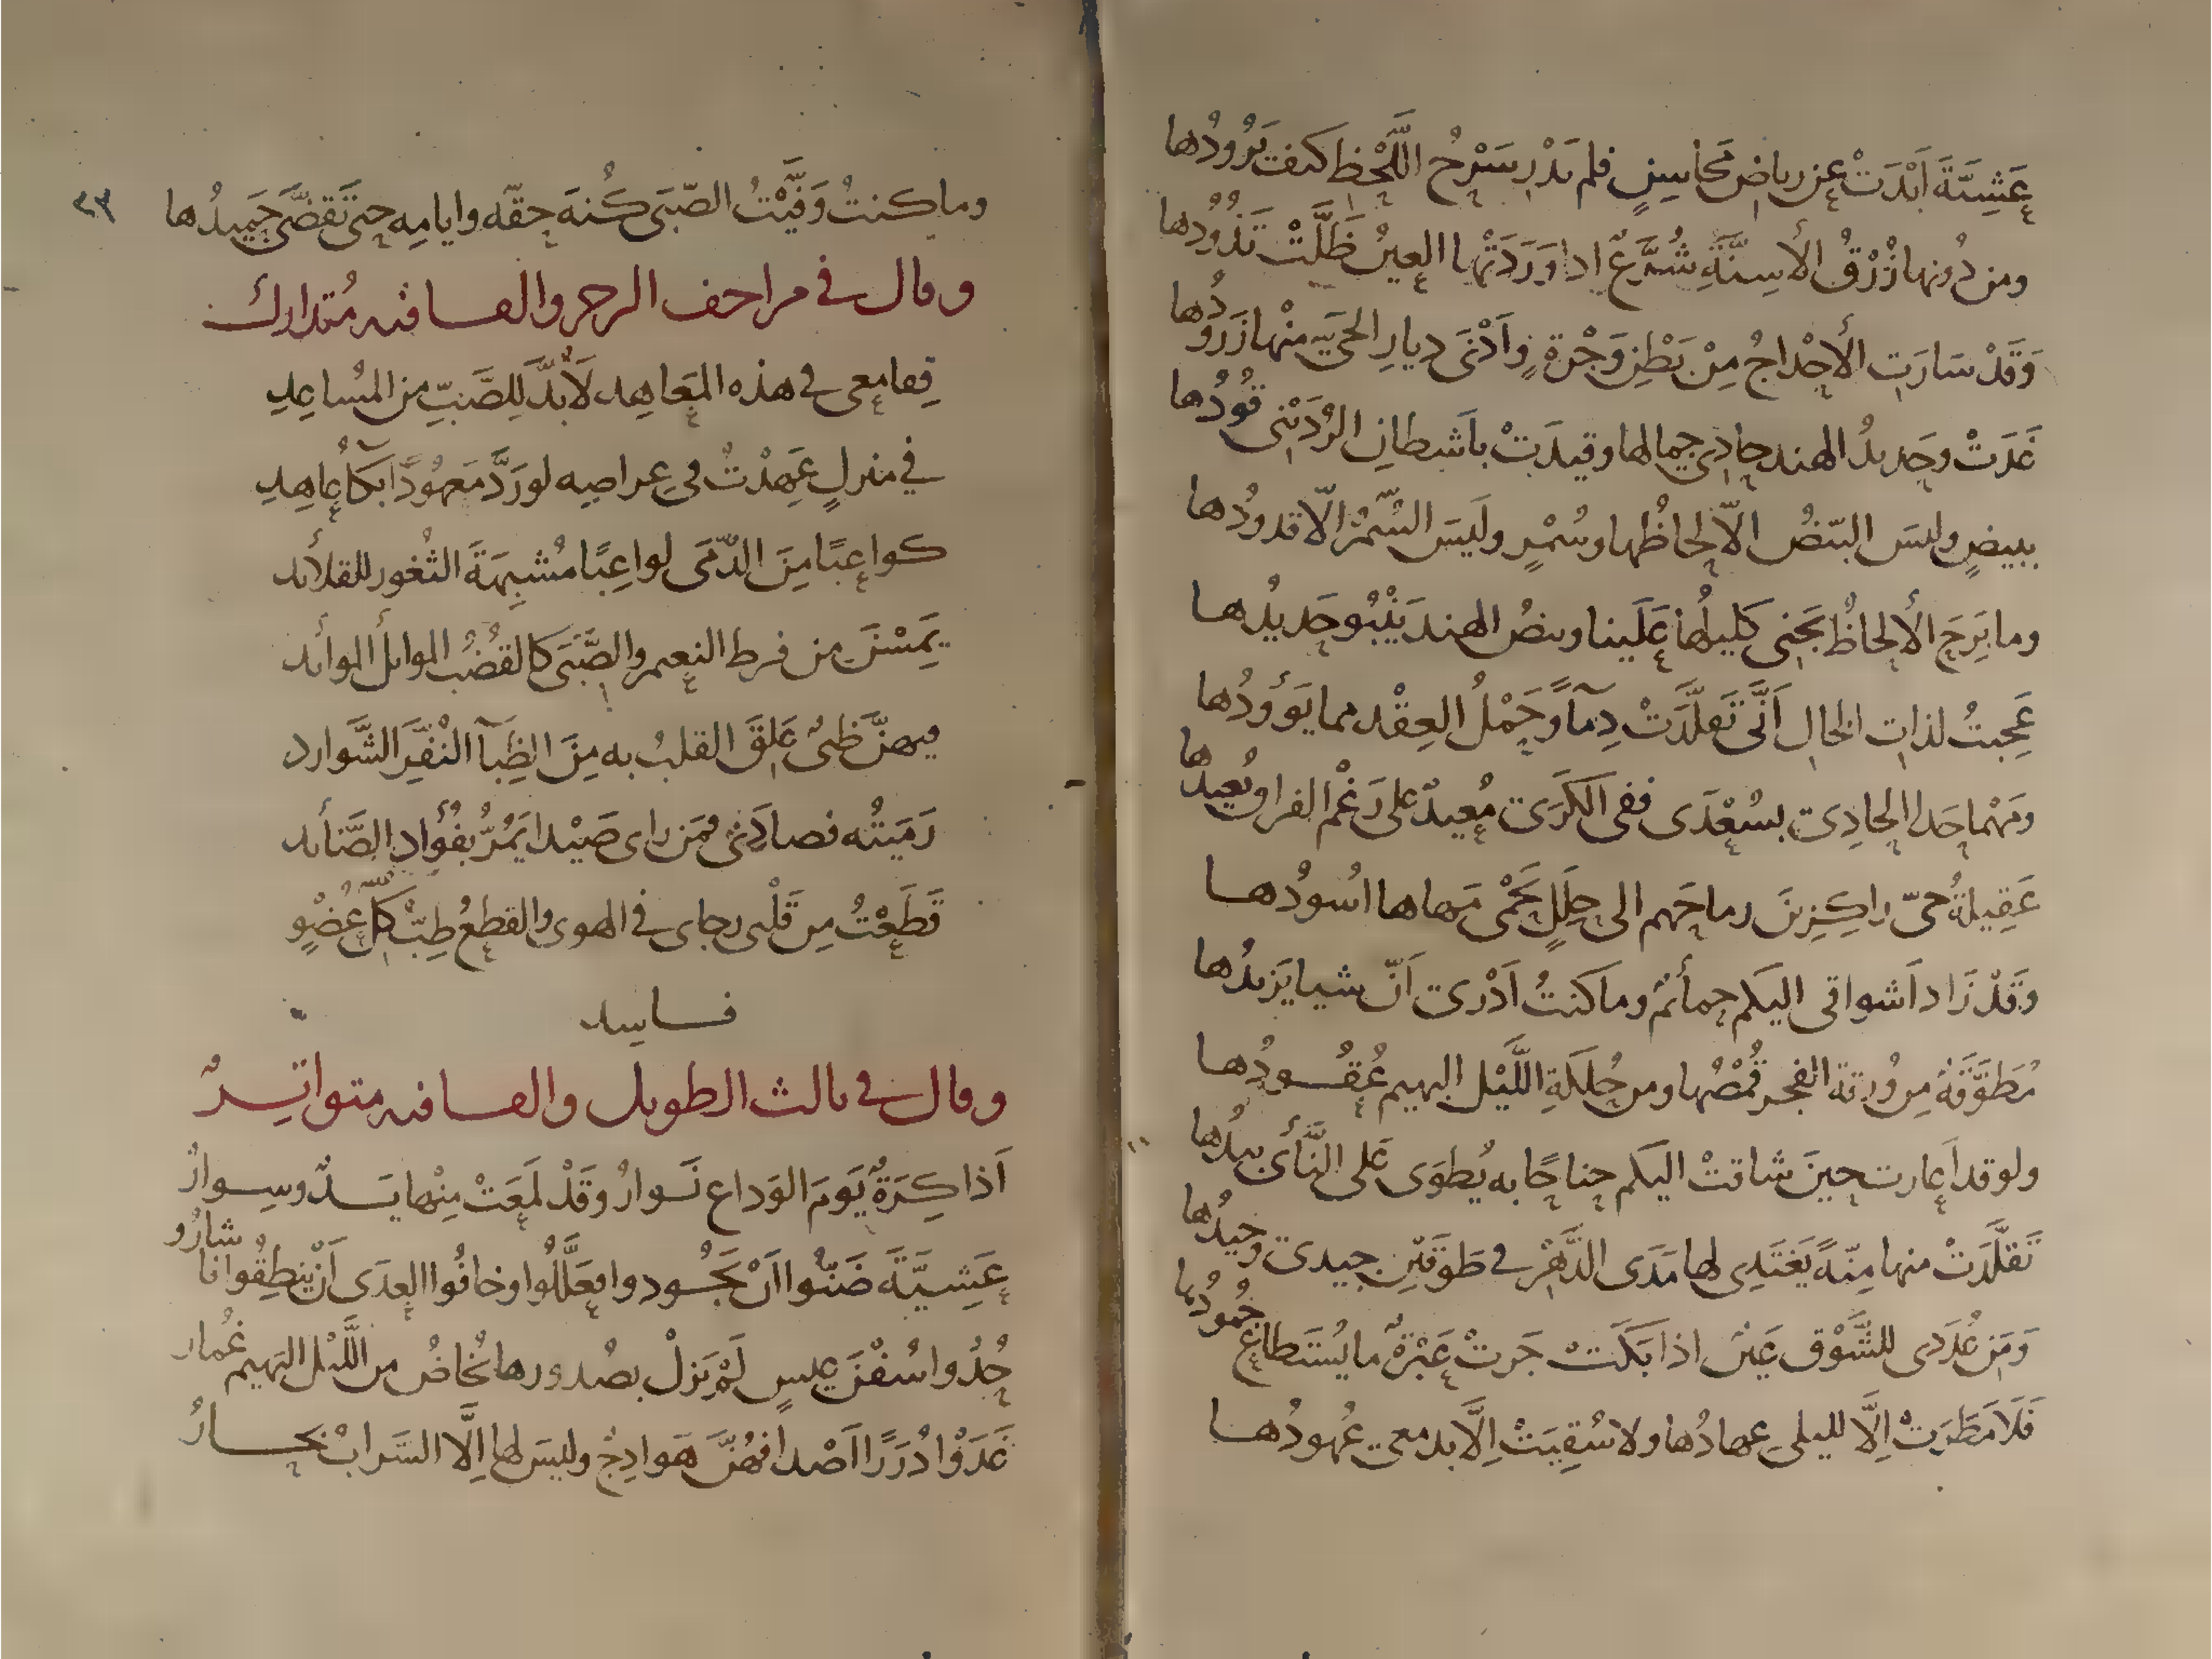 عَشِيَّةَ اَبْدَتْ عن رياضِ محَاسِنٍ فلم يَدْرِ سَرْحُ اللَّحْظِ كيفَ يَرُودُها
ومن دُونها زُرْقُ الأسِنَّةِ شُرَّعٌ اذا وَرَدَتْها العينُ ظَلَّتْ تَذُودُها
وَقَدْ سَارَتِ الأحْداجُ مِنْ بَطْنِ وَجْرةٍ وَاَدْنَى ديارِ الحَيِّ منْها زَرُودُها
غَدَتْ وحَديدُ الهند حادِي جِمالها وقيدَتْ باَشطانِ الرُدَيْنى قُودُها
ببيضٍ وليسَ البيْضُ الاّ لحاظُها وسُمْرٍ ولَيسَ السُّمْرُ الاّ قدودُها
وما بَرِحَ الألحاظُ يَجنى كليلُها عَلَينا وبيضُ الهند يَنْبُو حَديدُها
عَجِبتُ لذاتِ الخالِ اَنَّى تَقلَّدَتْ دِمآءً وحَمْلُ العِقْد مما يَؤُودُها
ومَهْما حَدا الحادِى بسُعْدَى ففى الكَرَى مُعيدٌ على رَغْم الفراق يُعيدُها
عَقِيلةُ حىّ راكِزينَ رماحَهم الى حِلَلٍ تَحْمى مَهاها اسُودُها
وَقَدْ زَاد اَشواقى اليكم حمائمٌ وما كنتُ اَدْرى اَنّ شيا يَزيدُها
مُطَوَّقةٌ مِن وُرقة الفجر قُمْصُها ومن حُلكَةِ اللَّيْل البهيم عُقُودُها
ولو قد اَعارت حينَ شاقتْ اليكم جناحًا به يُطوَى عَلى النَّأى بيدُها
تَقلَّدَتْ منها مِنّةً يَغتَدِى لها مَدَى الدَّهْرِ فى طَوقَيْنِ جيدى وجيدُها
وَمَن عُدَدى للشَّوْق عَينٌ اذا بَكَتْ جَرتْ عَبْرةٌ ما يُسْتَطاع جُمُودُها
فَلَا مَطَرَتْ اِلَّا لليلى عهادُها ولا سُقِيَتْ اِلَّا بدمعى عُهودُها
وما كنتُ وَفَّيْتُ الصّبَى كُنهَ حقّه وايامِه حتىَ تَقضَّى حَميدُها
٢٣
وقال فى مزاحف الرجز والقافيه مُتدارك
قِفا معى فى هذه المَعاهِد لَا بُدَّ لِلصَّبِّ من المُساعِدِ
في منزلٍ عَهِدْتُ في عِراصِه لو رَدَّ مَعهُودًا بُكآءُ عاهِدِ
كواعِبًا مِنَ الدّمَى لواعِبًا مُشبِهَةَ الثُغور للقلائد
يَمِسْنَ من فرط النعيم والصَّبَى كالقُضُب الموائل الموائد
فيهنَّ ظَبىٌ عَلِقَ القلبُ به مِنَ الظِبآ النُفَّرِ الشَّوارد
رَمَيتُه فصادَنى فمَن راى صَيْدا يَمُرُّ بفُؤَادِ الصَّائد
قَطَعْتُ مِن قَلْبى رجاى فى الهوى والقطعُ طِبّ كلِّ عُضْوٍ
فاسد
وقال فى ثالث الطويل والقافيه متواتِرٌ
اَذاكِرَةٌ يَومَ الوَداع نَوارُ وقَدْ لَمَعَتْ مِنْها يَدٌ وسِوارُ
عَشِيَّةَ ضَنّوا اَنْ يَجُودوا فعَلَّلُوا وخافُوا العِدَى اَنْ يَنطِقُوا فاشارُو
حُدُوا سُفْنَ عيسٍ لَمْ يَزلْ بصُدورها يُخاضُ من اللَّيْل البَهيم غُمار
غَدَوْا دُرَرًا اَصْدافهُنَّ هَوادِجٌ وليسَ لها اِلَّا السَّرابُ بحَارُ